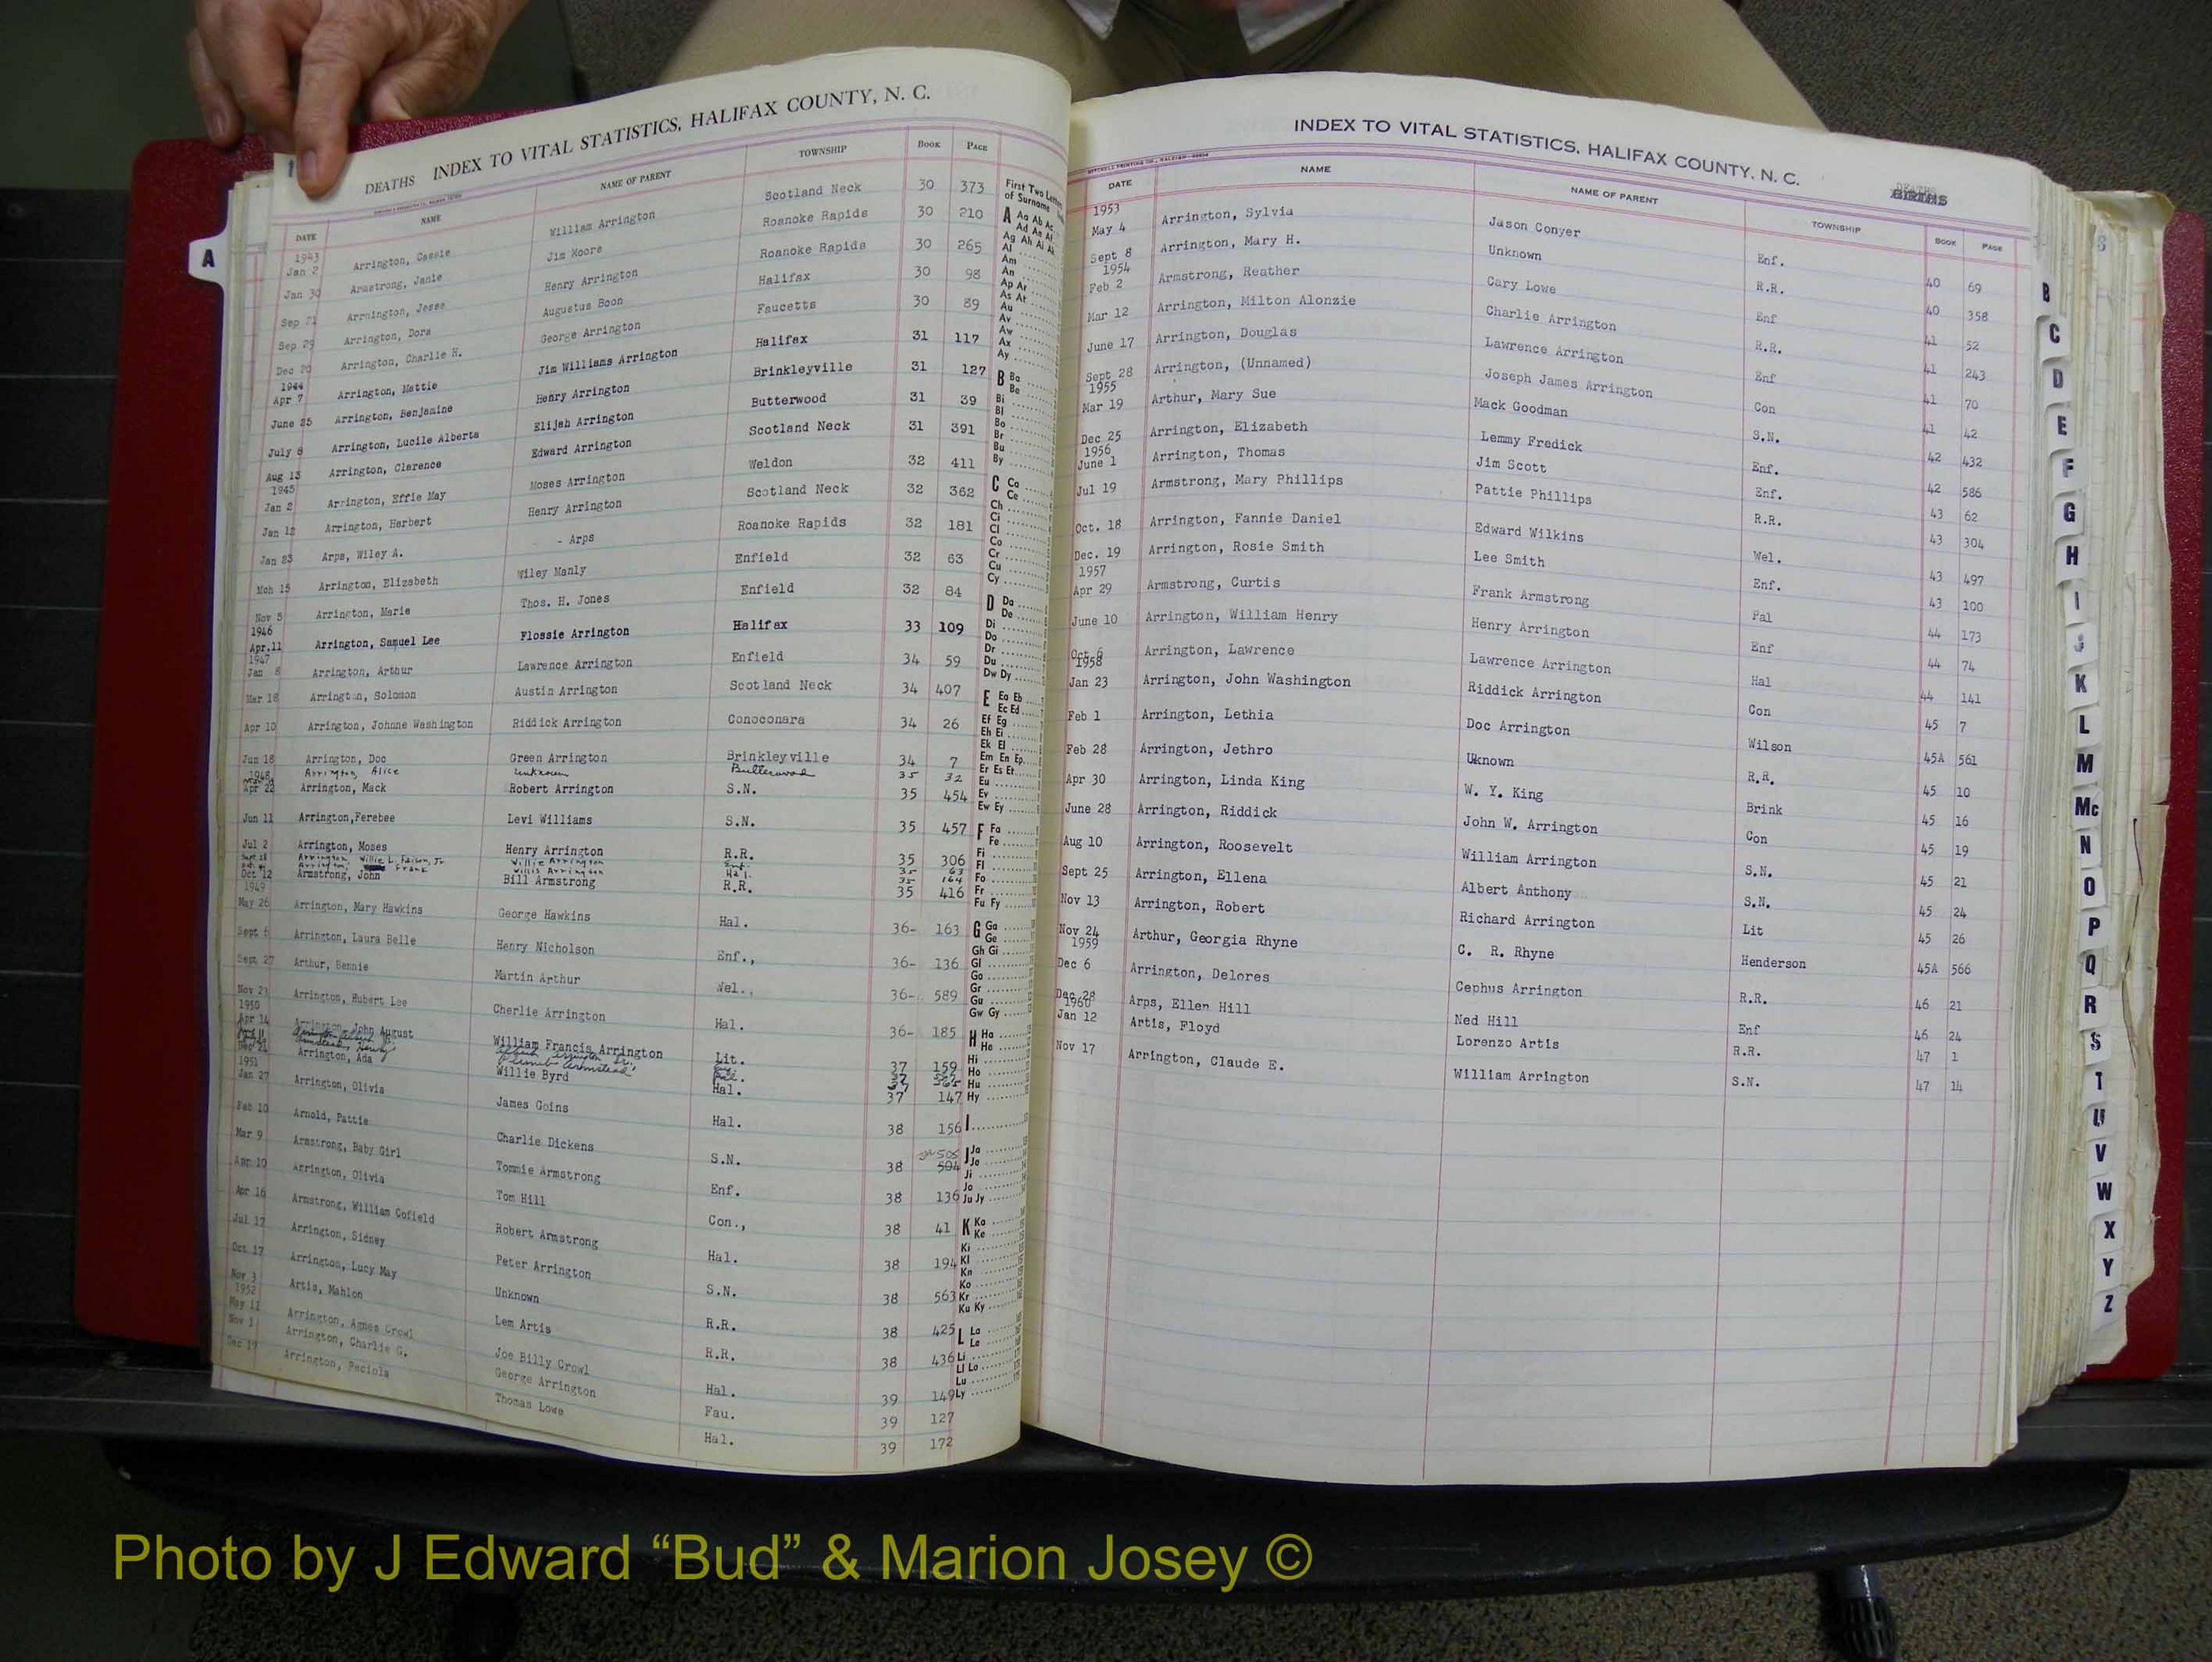 DEATHS INDEX TO VITAL STATISTICS, HALIFAX COUNTY, N. C.
DATE NAME NAME OF PARENT TOWNSHIP BOOK PAGE
1943
Jan 2 Arrington, Cassie William Arrington Scotland Neck 30 373
Jan 30 Armstrong, Janie Jim Moore Roanoke Rapids 30 210
Sep 21 Arrnington, Jesse Henry Arrington Roanoke Rapids 30 265
Sep 29 Arrington, Dora Augustus Boon Halifax 30 98
Dec 20 Arrington, Charlie H. George Arrington Faucetts 30 89
1944
Apr 7 Arrington, Mattie Jim Williams Arrington Halifax 31 117
June 25 Arrington, Benjamine Henry Arrington Brinkleyville 31 127
July 8 Arrington, Lucile Alberta Elijah Arrington Butterwood 31 39
Aug 13 Arrington, Clarence Edward Arrington Scotland Neck 31 391
1945
Jan 2 Arrington, Effie May Moses Arrington Weldon 32 411
Jan 12 Arrington, Herbert Henry Arrington Scotland Neck 32 362
Jan 23 Arps, Wiley A. - Arps Roanoke Rapids 32 181
Mch 15 Arrington, Elizabeth Wiley Manly Enfield 32 63
Nov 5 Arrington, Marie Thos. H. Jones Enfield 32 84
1946
Apr.11 Arrington, Samuel Lee Flossie Arrington Halifax 33 109
1947
Jan 8 Arrington, Arthur Lawrence Arrington Enfield 34 59
Mar 18 Arrington, Solomon Austin Arrington Scotland Neck 34 407
Apr 10 Arrington, Johnne Washington Riddick Arrington Conoconara 34 26
Jun 18 Arrington, Doc Green Arrington Brinkleyville 34 7
1948 Arrington, Alice Unknown Butterwood 35 32
Apr 22 Arrington, Mack Robert Arrington S.N. 35 454
Jun 11 Arrington,Ferebee Levi Williams S.N. 35 457
Jul 2 Arrington, Moses Henry Arrington R.R. 35 306
Sept Arrington, Willie L. Faison, Jr. Willie Arrington Enf. 35 63
Arrington, Frank Willis Arrington Hal. 35 164
Oct 12 Armstrong, John Bill Armstrong R.R. 35 416
1949
May 26 Arrington, Mary Hawkins George Hawkins Hal. 36- 163
Sept 6 Arrington, Laura Belle Henry Nicholson Enf., 36- 136
Sept 27 Arthur, Bennie Martin Arthur Wel., 36- 589
Nov 23 Arrington, Hubert Lee Cherlie Arrington Hal. 36- 185
1950
Apr 14 Arrington, John August William Francis Arrington Lit. 37 159
Dec 21 Arrington, Ada Willie Byrd Hal. 37 147
1951
Jan 27 Arrington, Olivia James Goins Hal. 38 156
Feb 10 Arnold, Pattie Charlie Dickens S.N. 38 504 505
Mar 9 Armstrong, Baby Girl Tommie Armstrong Enf. 38 136
Apr 10 Arrington, Olivia Tom Hill Con., 38 41
Apr 16 Armstrong, William Cofield Robert Armstrong Hal. 38 194
Jul 17 Arrington, Sidney Peter Arrington S.N. 38 563
Oct 17 Arrington, Lucy May Unknown R.R. 38 425
Nov 3 Artis, Mahlon Lem Artis R.R. 38 436
1952
May 11 Arrington, Agnes Crowl Joe Billy Crowl Hal. 39 149
Nov 1 Arrington, Charlie G. George Arrington Fau. 39 127
Dec 19 Arrington, Peciola Thomas Lowe Hal. 39 172
First Two Letters
of Surname
A Aa Ab Ac
Ad Ae Af
Ag Ah Ai Ak
Al
Am
An
Ap Ar
As At
Au
Av
Aw
Ax
Ay
B Ba
Be
Bi
Bl
Bo
Br
Bu
By
C Ca
Ce
Ch
Ci
Cl
Co
Cr
Cu
Cy
D Da
De
Di
Do
Dr
Du
Dw Dy
E Ea Eb
Ec Ed
Ef Eg
Eh Ei
Ek El
Em En Ep
Er Es Et
Eu
Ev
Ew Ey
F Fa
Fe
Fi
Fl
Fo
Fr
Fu Fy
G Ga
Ge
Gh Gi
Gl
Go
Gr
Gu
Gw Gy
H Ha
He
Hi
Ho
Hu
Hy
I
J Ja
Je
Ji
Jo
Ju Jy
K Ka
Ke
Ki
Kl
Kn
Ko
Kr
Ku Ky
L La
Le
Li
Ll Lo
Lu
Ly
A
INDEX TO VITAL STATISTICS, HALIFAX COUNTY, N. C.
DEATHS
BIRTHS
DATE NAME NAME OF PARENT TOWNSHIP BOOK PAGE
1953
May 4 Arrington, Sylvia Jason Conyer Enf. 40 69
Sept 8 Arrington, Mary H. Unknown R.R. 40 358
1954
Feb 2 Armstrong, Reather Cary Lowe Enf 41 52
Mar 12 Arrington, Milton Alonzie Charlie Arrington R.R. 41 243
June 17 Arrington, Douglas Lawrence Arrington Enf 41 70
Sept 28 Arrington, (Unnamed) Joseph James Arrington Con 41 42
1955
Mar 19 Arthur, Mary Sue Mack Goodman S.N. 42 432
Dec 25 Arrington, Elizabeth Lemmy Fredick Enf. 42 586
1956
June 1 Arrington, Thomas Jim Scott Enf. 43 62
Jul 19 Armstrong, Mary Phillips Pattie Phillips R.R. 43 304
Oct. 18 Arrington, Fannie Daniel Edward Wilkins Wel. 43 497
Dec. 19 Arrington, Rosie Smith Lee Smith Enf. 43 100
1957
Apr 29 Armstrong, Curtis Frank Armstrong Pal 44 173
June 10 Arrington, William Henry Henry Arrington Enf 44 74
Oct 6 Arrington, Lawrence Lawrence Arrington Hal 44 141
1958
Jan 23 Arrington, John Washington Riddick Arrington Con 45 7
Feb 1 Arrington, Lethia Doc Arrington Wilson 45A 561
Feb 28 Arrington, Jethro Uknown R.R. 45 10
Apr 30 Arrington, Linda King W. Y. King Brink 45 16
June 28 Arrington, Riddick John W. Arrington Con 45 19
Aug 10 Arrington, Roosevelt William Arrington S.N. 45 21
Sept 25 Arrington, Ellena Albert Anthony S.N. 45 24
Nov 13 Arrington, Robert Richard Arrington Lit 45 26
Nov 24 Arthur, Georgia Rhyne C. R. Rhyne Henderson 45A 566
1959
Dec 6 Arrington, Delores Cephus Arrington R.R. 46 21
Dec 28 Arps, Ellen Hill Ned Hill Enf 46 24
1960
Jan 12 Artis, Floyd Lorenzo Artis R.R. 47 1
Nov 17 Arrington, Claude E. William Arrington S.N. 47 14
B
C
D
E
F
G
H
I
J
K
L
M
Mc
N
O
P
Q
R
S
T
U
V
W
X
Y
Z
Photo by J Edward “Bud” & Marion Josey ©